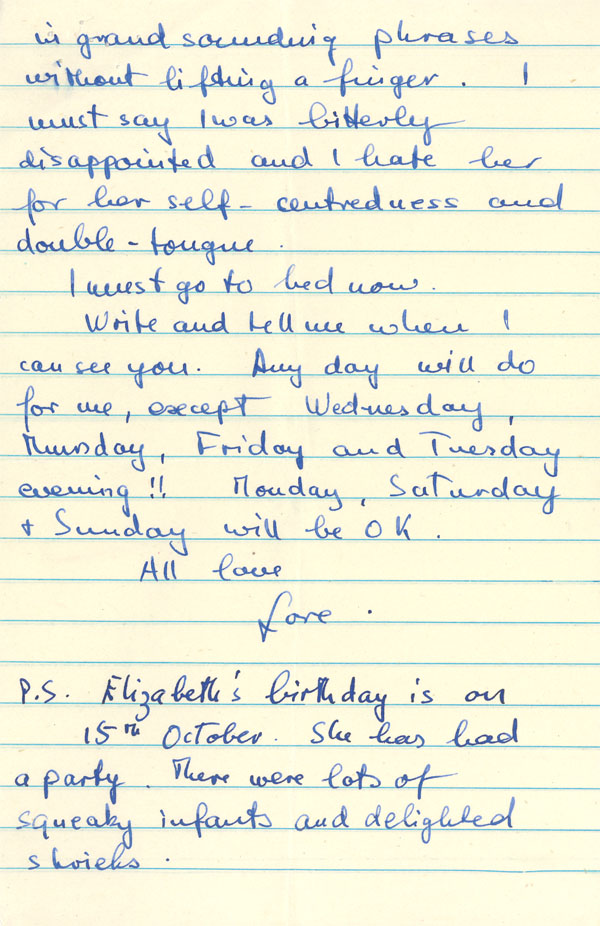 in grand sounding phrases
without lifting a finger. I
must say I was bitterly
disappointed and I hate her
for her self-centredness and
double-tongue.
I must go to bed now.
Write and tell me when I
can see you. Any day will do
for me, except Wednesday,
Thursday, Friday and Tuesday
evening!! Monday, Saturday
+ Sunday will be OK.
All love
Lore.
P.S. Elizabeth's birthday is on
15th October. She has had
a party. There were lots of
squeaky infants and delighted
shrieks.